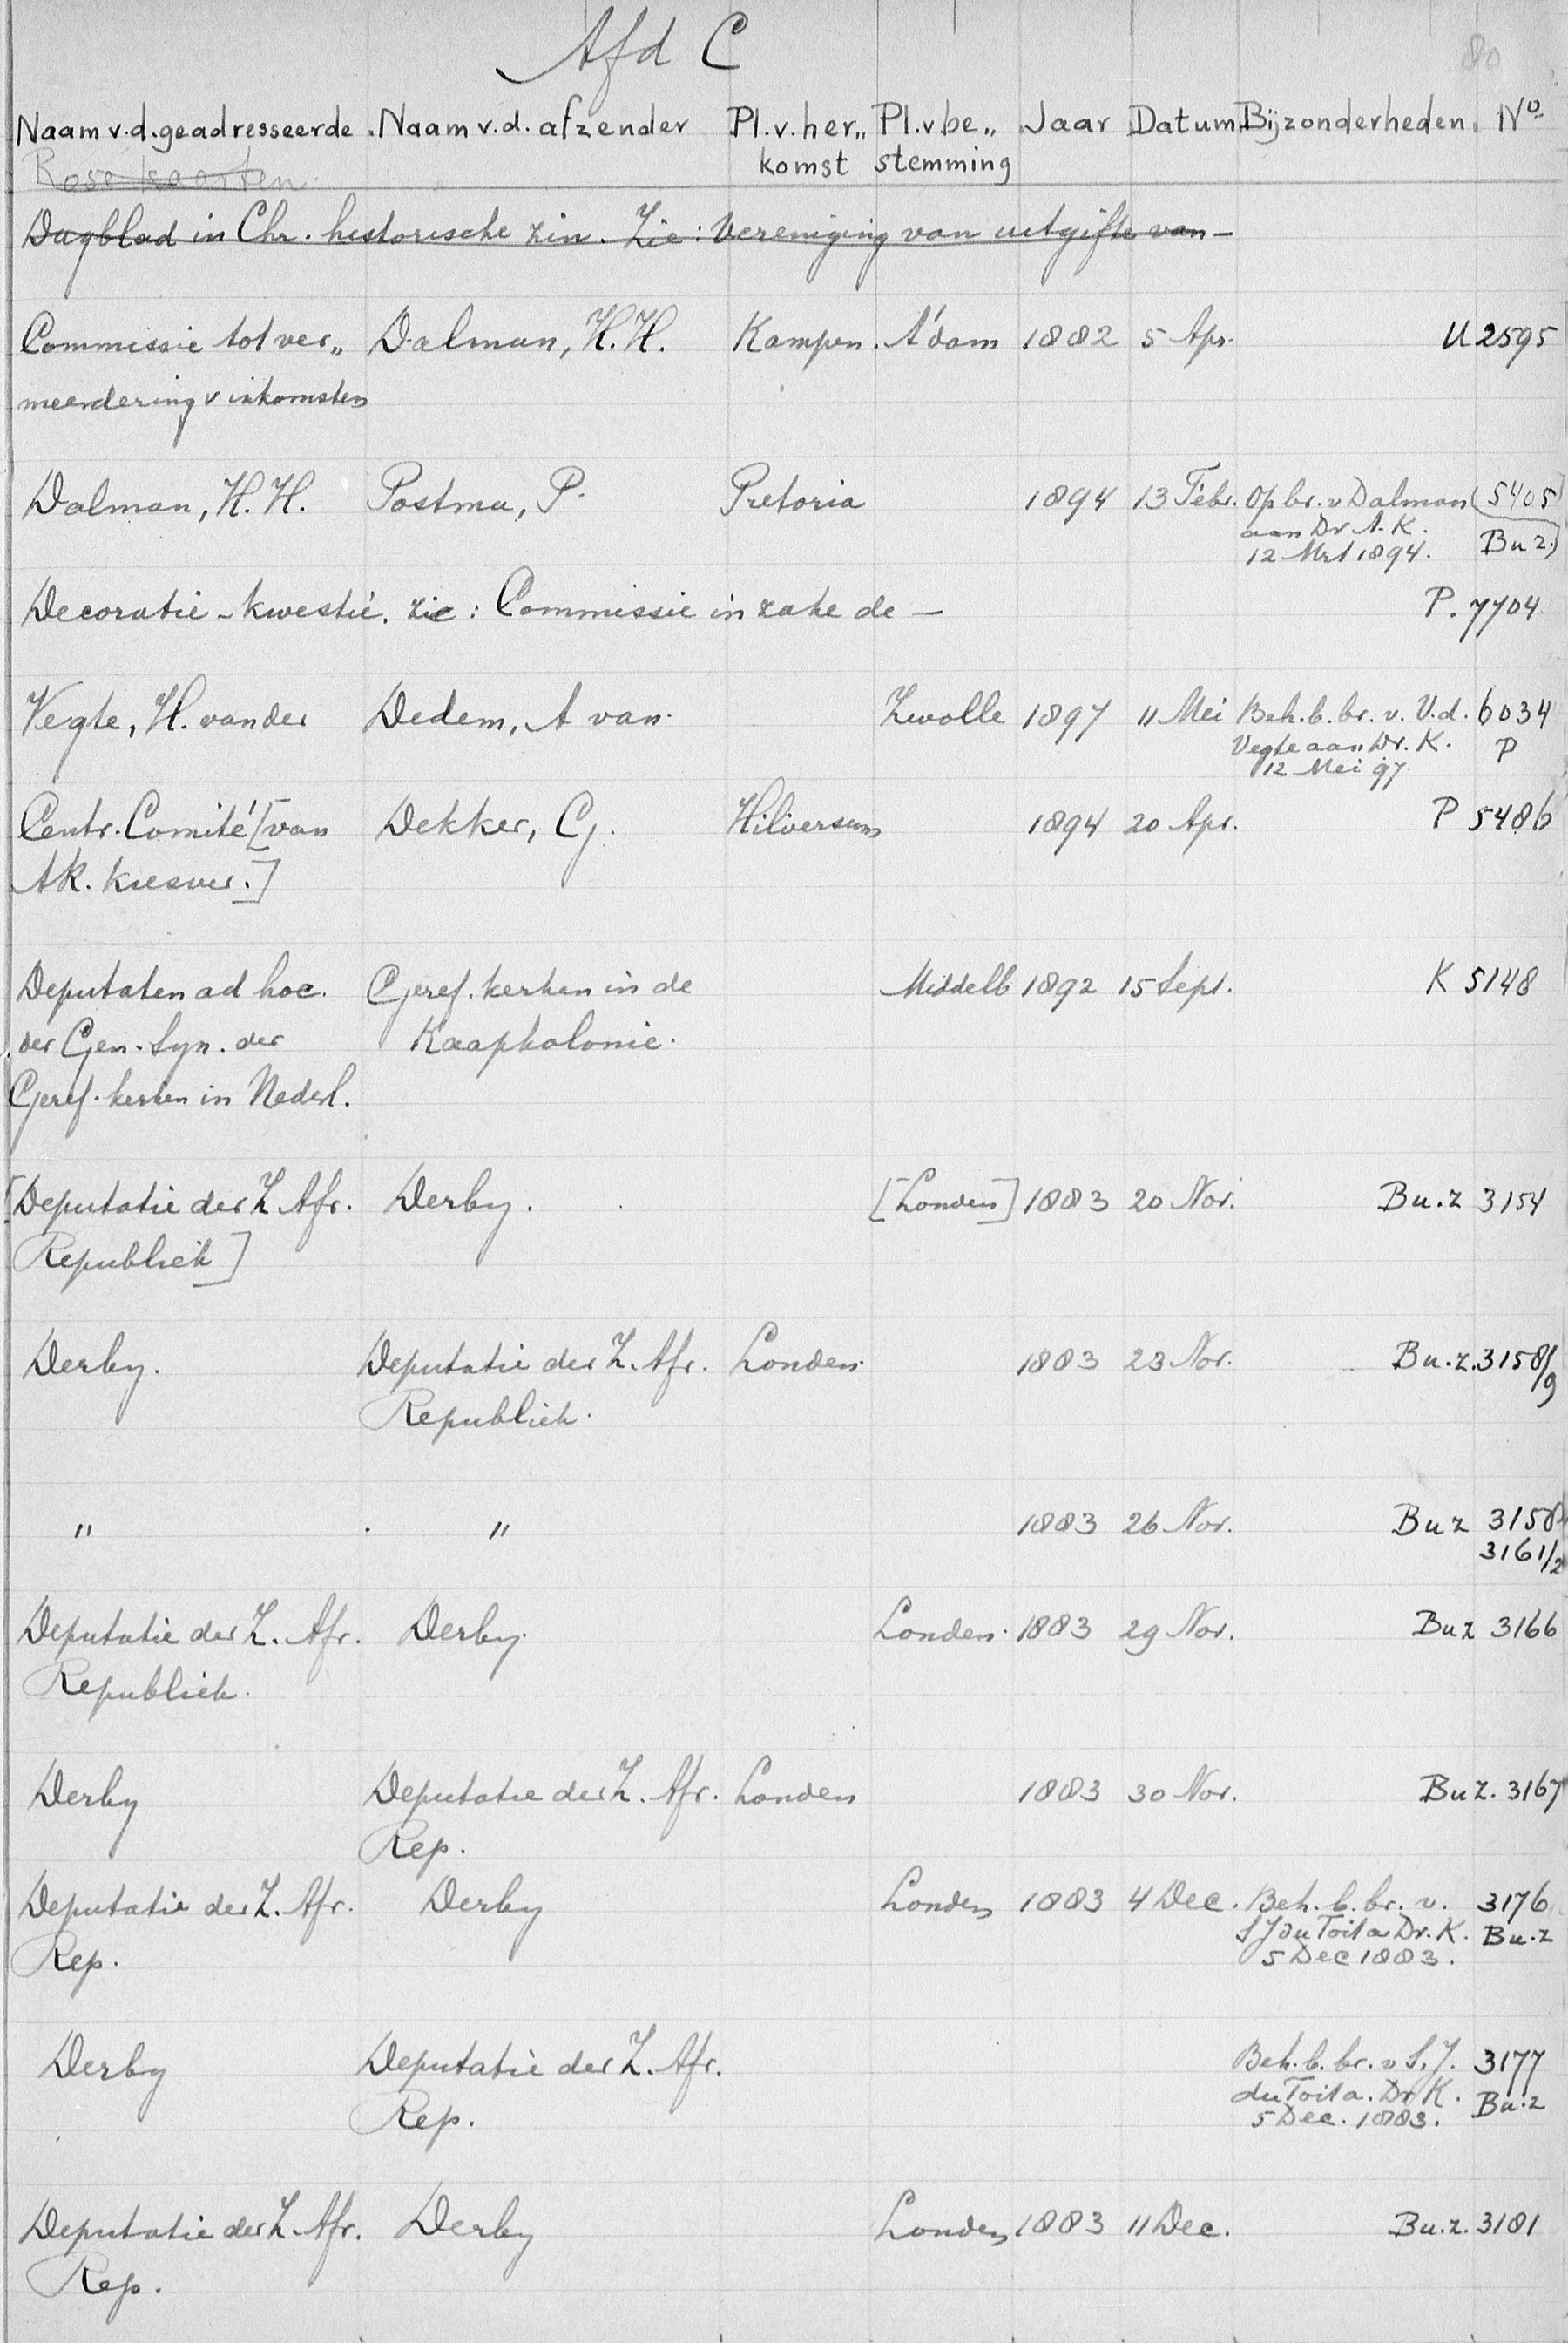 Afd C
80
Naam v.d. geadresseerde. Naam v.d. afzender Pl. v. her„ Pl. v. be„ Jaar Datum Bijzonderheden. No
komst stemming
Rose kaarten.
Dagblad in Chr. historische zin. Zie: Vereniging van uitgifte van —
Commissie tot ver„ Dalman, H.H. Kampen. A'dam 1882 5 Apr. U 2595
meerdering v inkomsten
Dalman, H.H. Postma, P. Pretoria 1894 13 Febr. Op br. v Dalman (5405
aan Dr A.K.
12 Mrt 1894. Bu z.)
Decoratie-kwestie. zie: Commissie in zake de — P. 7704
Vegte, H. van der Dedem, A van. Zwolle 1897 11 Mei Beh. b. br. v. V.d. 6034
Vegte aan Dr. K. P
12 Mei 97.
Centr. Comité [van Dekker, G. Hilversum 1894 20 Apr. P 5486
AR. kiesver.]
Deputaten ad hoc. Geref. kerken in de Middelb 1892 15 Sept. K 5148
der Gen. Syn. der Kaapkolonie.
Geref. kerken in Nederl.
[Deputatie der Z. Afr. Derby. [Londen] 1883 20 Nov. Bu.z 3154
Republiek]
Derby. Deputatie der Z. Afr. Londen. 1883 23 Nov. Bu.z. 3158/9
Republiek.
" " 1883 26 Nov. Bu z 3158
3161/2
Deputatie der Z. Afr. Derby. Londen. 1883 29 Nov. Bu z 3166
Republiek.
Derby Deputatie der Z. Afr. Londen 1883 30 Nov. Bu z. 3167
Rep.
Deputatie der Z. Afr. Derby Londen 1883 4 Dec. Beh. b. br. v. 3176
Rep. S J du Toit a Dr. K. Bu.z
5 Dec 1883.
Derby Deputatie der Z. Afr. Beh. b. br. v S.J. 3177
Rep. du Toit a. Dr K. Bu.z
5 Dec. 1883.
Deputatie der Z. Afr. Derby Londen 1883 11 Dec. Bu.z. 3181
Rep.